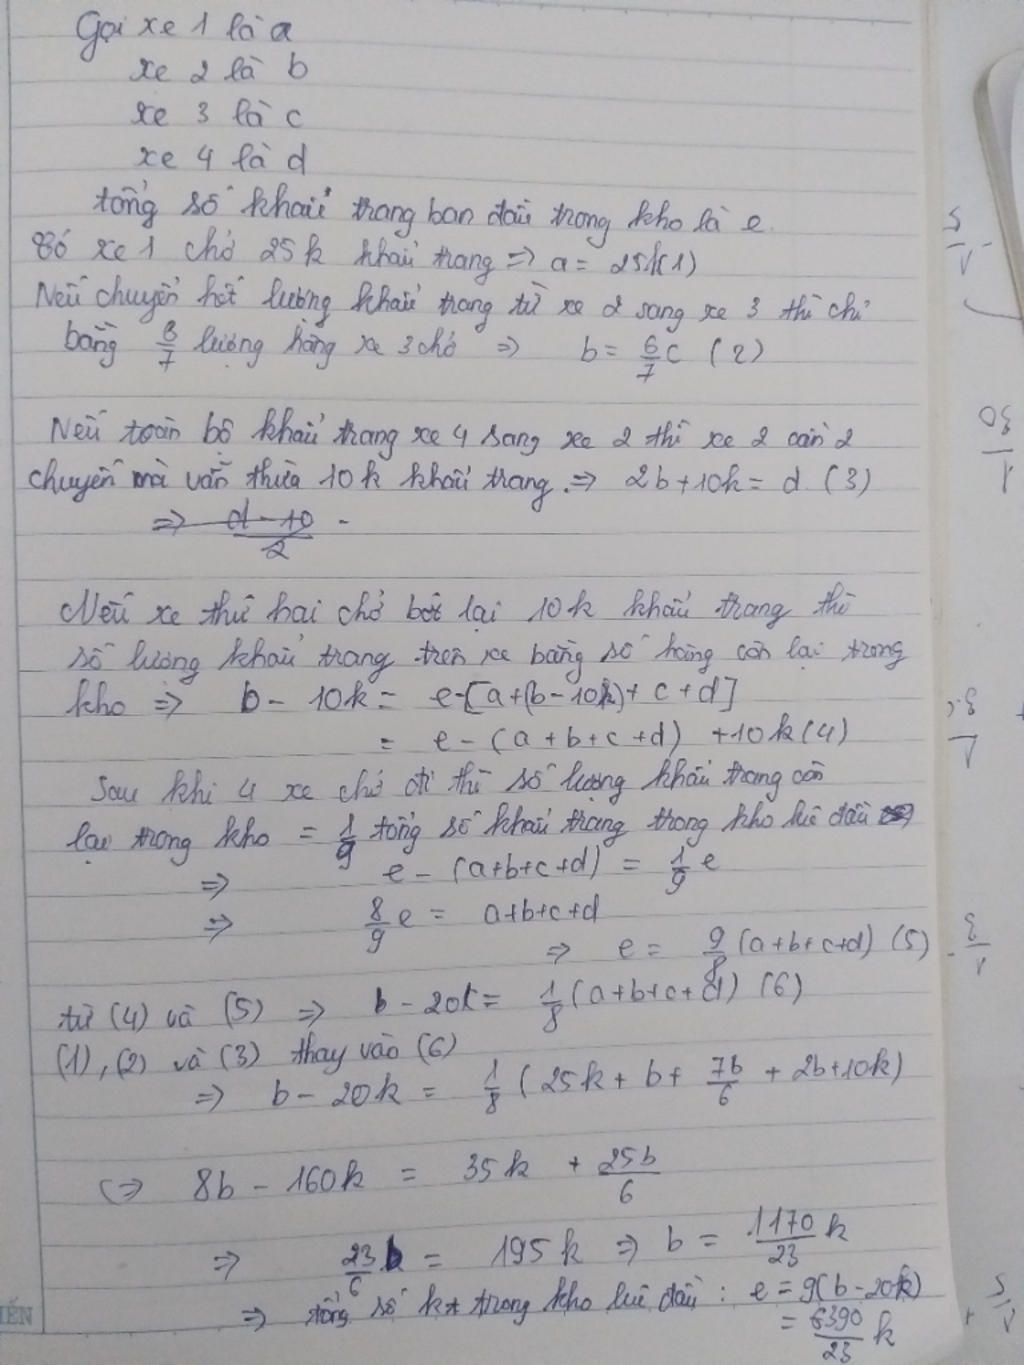 Gọi xe 1 là a
xe 2 là b
xe 3 là c
xe 4 là d
tổng số khẩu trang ban đầu trong kho là e.
Có xe 1 chở 25k khẩu trang => a = 25k(1)
Nếu chuyển hết lượng khẩu trang từ xe 2 sang xe 3 thì chỉ
bằng 6/7 lượng hàng xe 3 chở => b = 6/7 c (2)
Nếu toàn bộ khẩu trang xe 4 sang xe 2 thì xe 2 cần 2
chuyến mà vẫn thừa 10k khẩu trang. => 2b + 10k = d (3)
=> d - 10 / 2
Nếu xe thứ hai chở bớt lại 10k khẩu trang thì
số lượng khẩu trang trên xe bằng số hàng còn lại trong
kho => b - 10k = e - [a + (b - 10k) + c + d]
= e - (a + b + c + d) + 10k (4)
Sau khi 4 xe chở đi thì số lượng khẩu trang còn
lại trong kho = 1/9 tổng số khẩu trang trong kho lúc đầu
=> e - (a+b+c+d) = 1/9 e
=> 8/9 e = a+b+c+d
=> e = 9/8 (a+b+c+d) (5)
từ (4) và (5) => b - 20k = 1/8 (a+b+c+d) (6)
(1), (2) và (3) thay vào (6)
=> b - 20k = 1/8 (25k + b + 7b/6 + 2b + 10k)
<=> 8b - 160k = 35k + 25b/6
=> 23/6 b = 195k => b = 1170/23 k
=> tổng số kt trong kho lúc đầu : e = 9(b - 20k)
= 6390/23 k
IẾN